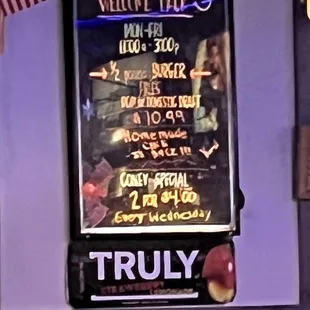 WELCOME
MON-FRI
11:00a - 3:00p
→ 1/2 BURGER ←
FRIES
DOMESTIC DRAFT
$10.99
Homemade
IS BACK!!!
CONEY SPECIAL
2 FOR $4.00
Every Wednesday
TRULY
STRAWBERRY
LEMONADE